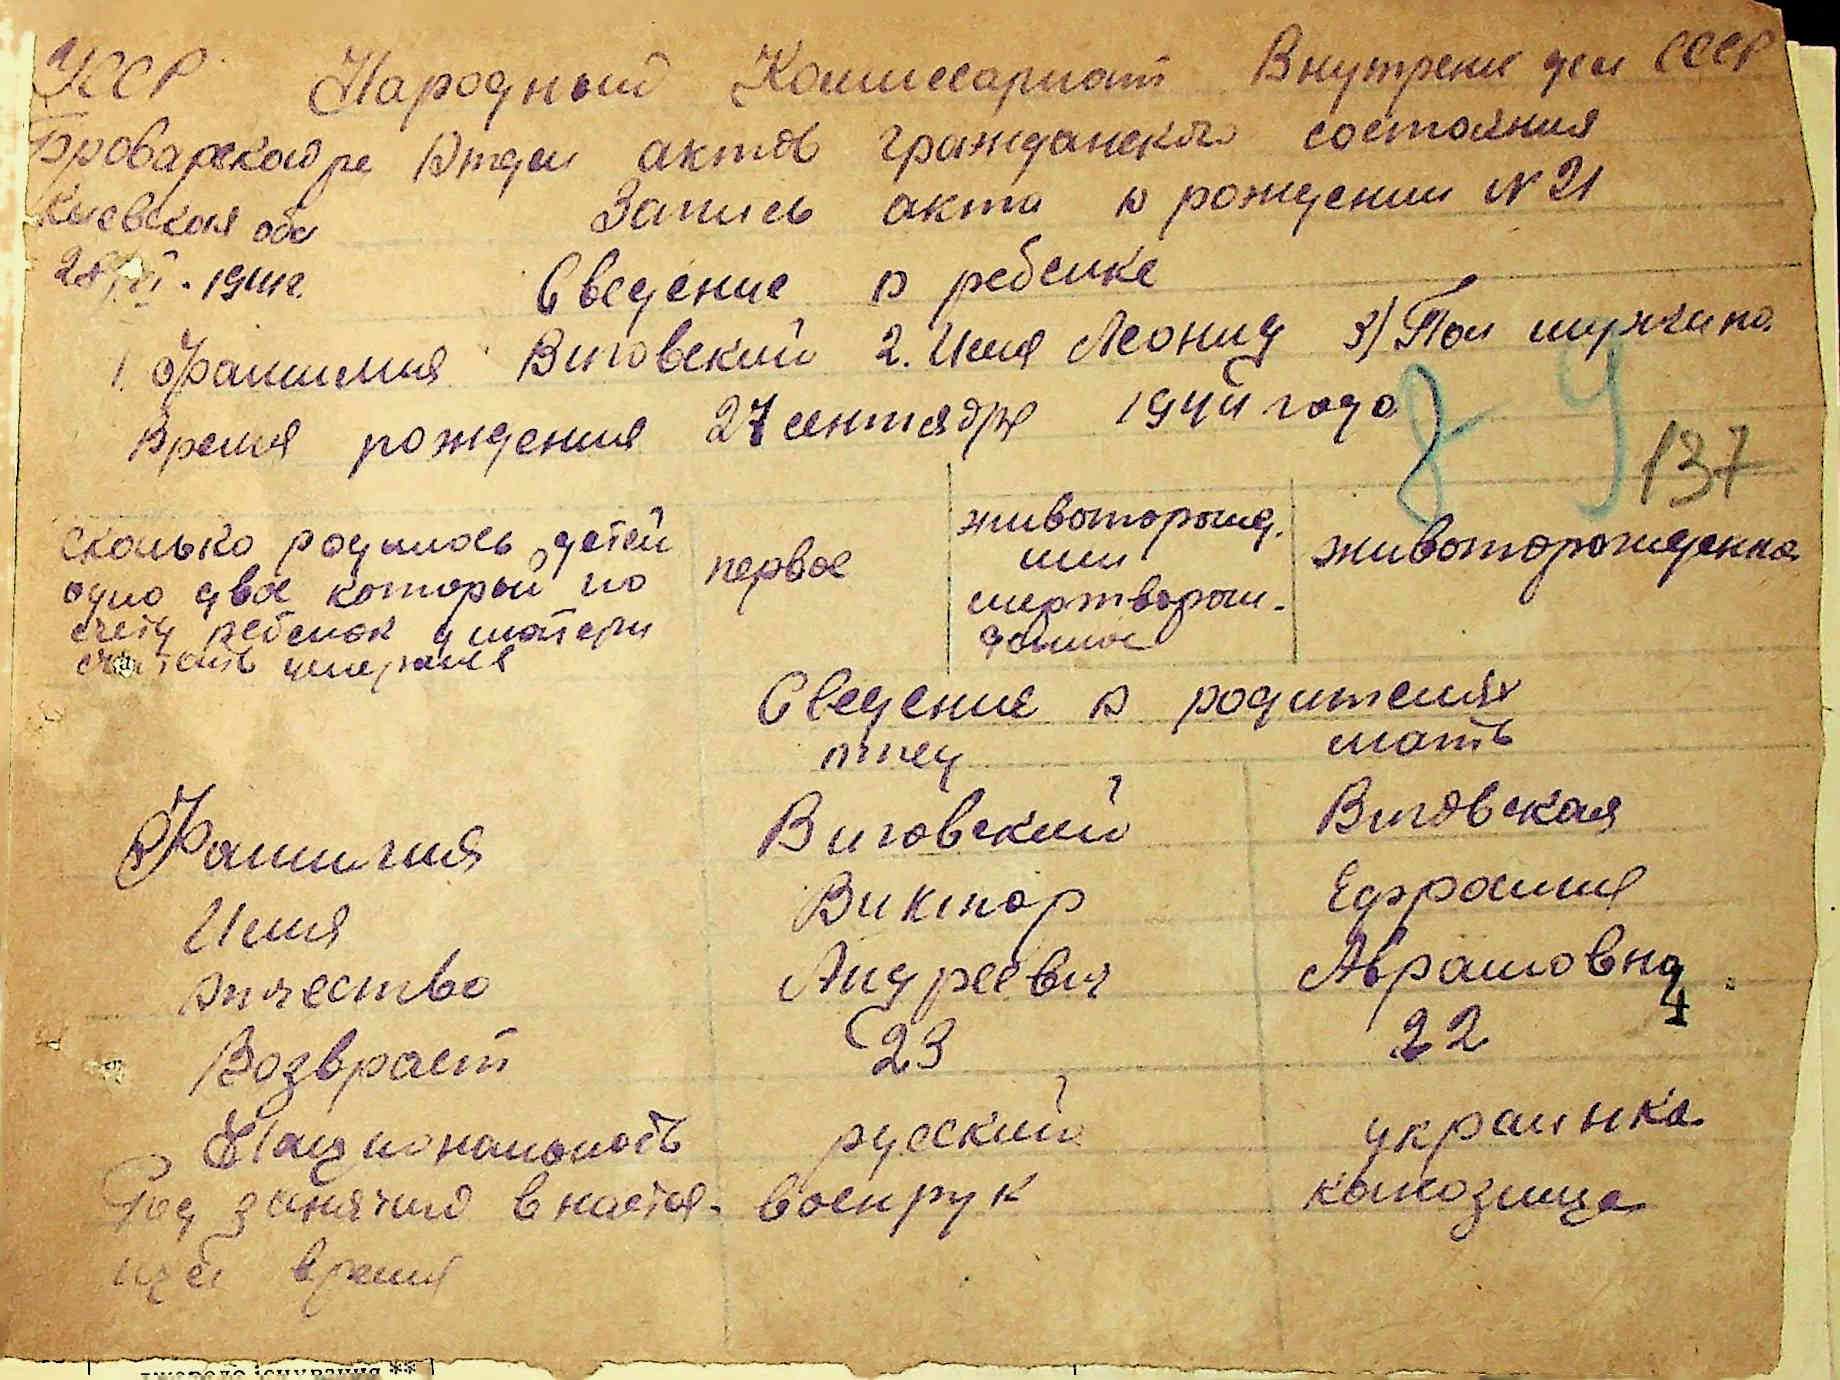 УССР Народный Комиссариат Внутрене дел СССР
Броварской ре Отдел актов гражданского состояния
Киевская обл Запись акта о рождении N 21
1944г. Сведение о ребенке
1. Фамилия Виговский 2. Имя Леонид 3) Пол мужчина
Время рождения 27 сентября 1944 года
8 9
137
сколько родилось детей
одно двое который по
счету ребенок у матери
считать умерших
первое
живоророжд.
или
мертворож-
денное
животорожденно
Сведение о родителях
отец мать
Фамилия Виговский Виговская
Имя Виктор Ефросиния
Отчество Андреевич Абрамовна
4
Возвраст 23 22
Национальность русский украинка
Род занятия в настоя- военрук колхозница
щее время